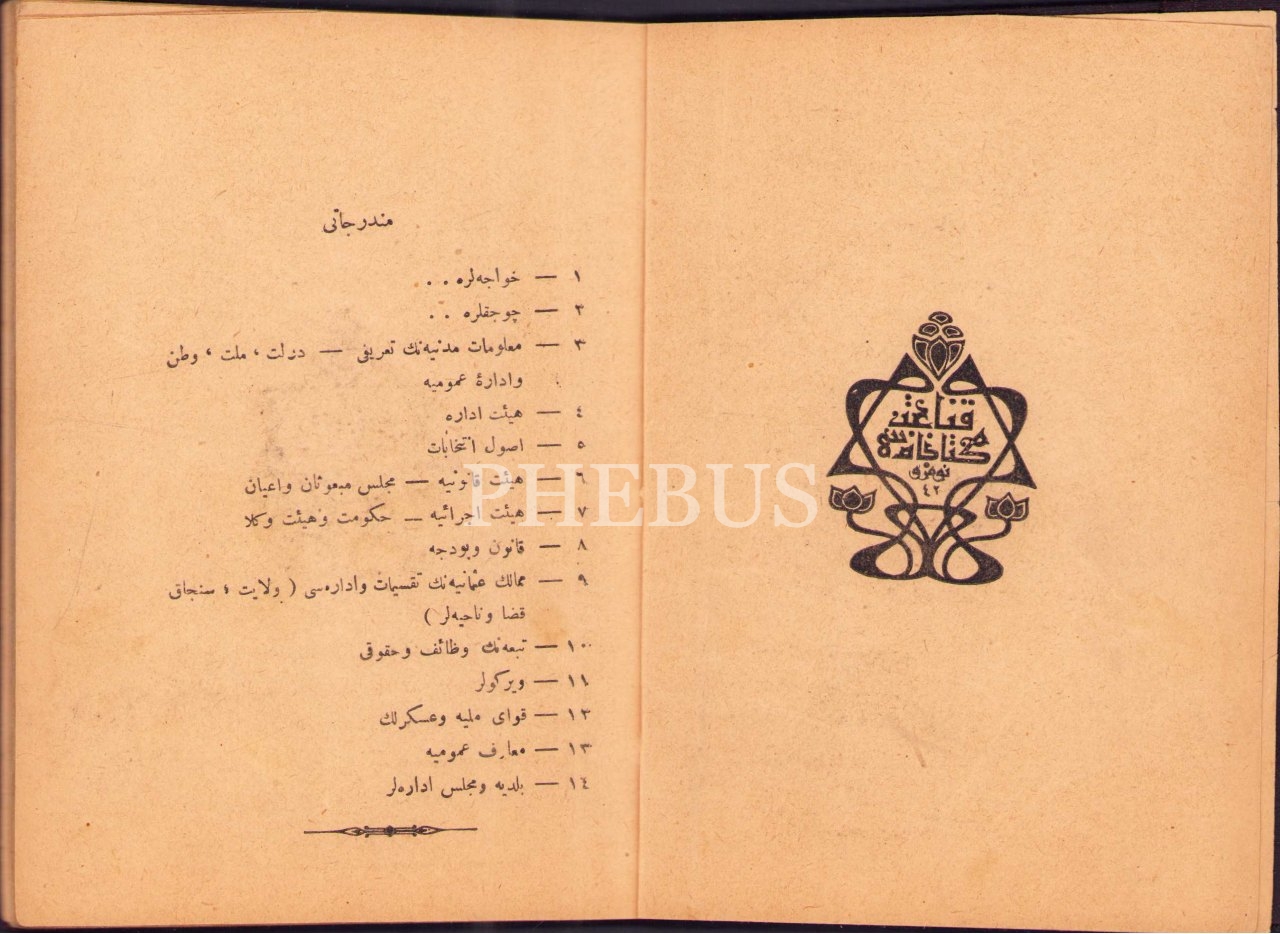 قناعت
كتبخانه سی
نومرو
٤٢
مندرجاتی
١ — خواجه‌لره . .
٢ — چوجقلره . .
٣ — معلومات مدنیه‌نك تعریفی — دولت ، ملت ، وطن
وادارهٔ عمومیه
٤ — هیئت اداره
٥ — اصول انتخابات
٦ — هیئت قانونیه — مجلس مبعوثان واعیان
٧ — هیئت اجرائیه — حكومت وهیئت وكلا
٨ — قانون وبودجه
٩ — ممالك عثمانیه‌نك تقسیمات واداره‌سی ( ولایت ، سنجاق
قضا وناحیه‌لر )
١٠ — تبعه‌نك وظائف وحقوقی
١١ — ویركولر
١٢ — قوای ملیه وعسكرلك
١٣ — معارف عمومیه
١٤ — بلدیه ومجلس اداره‌لر
PHEBUS